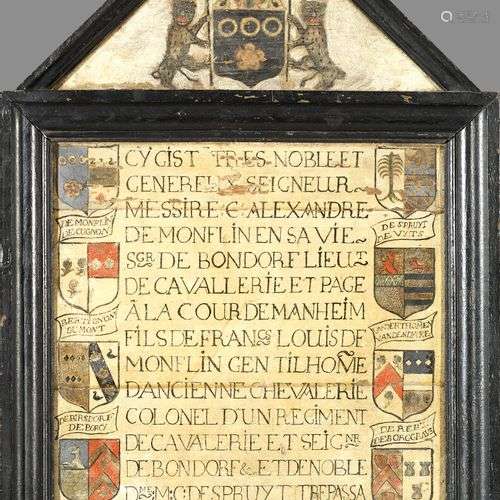 CY GIST TRES NOBLE ET
GENEREUX SEIGNEUR
MESSIRE C. ALEXANDRE
DE MONFLIN EN SA VIE
SGR DE BONDORF LIEUT
DE CAVALLERIE ET PAGE
À LA COUR DE MANHEIM
FILS DE FRANS LOUIS DE
MONFLIN GENTILHOME
D'ANCIENNE CHEVALERIE
COLONEL D'UN REGIMENT
DE CAVALERIE ET SEIGNR
DE BONDORF & ET DE NOBLE
C. DE SPRUYT TREPASSA
DE MONFLIN
DE CUGNON
DU MONT
DE BORCY
DE SPRUYT
DE VYTS